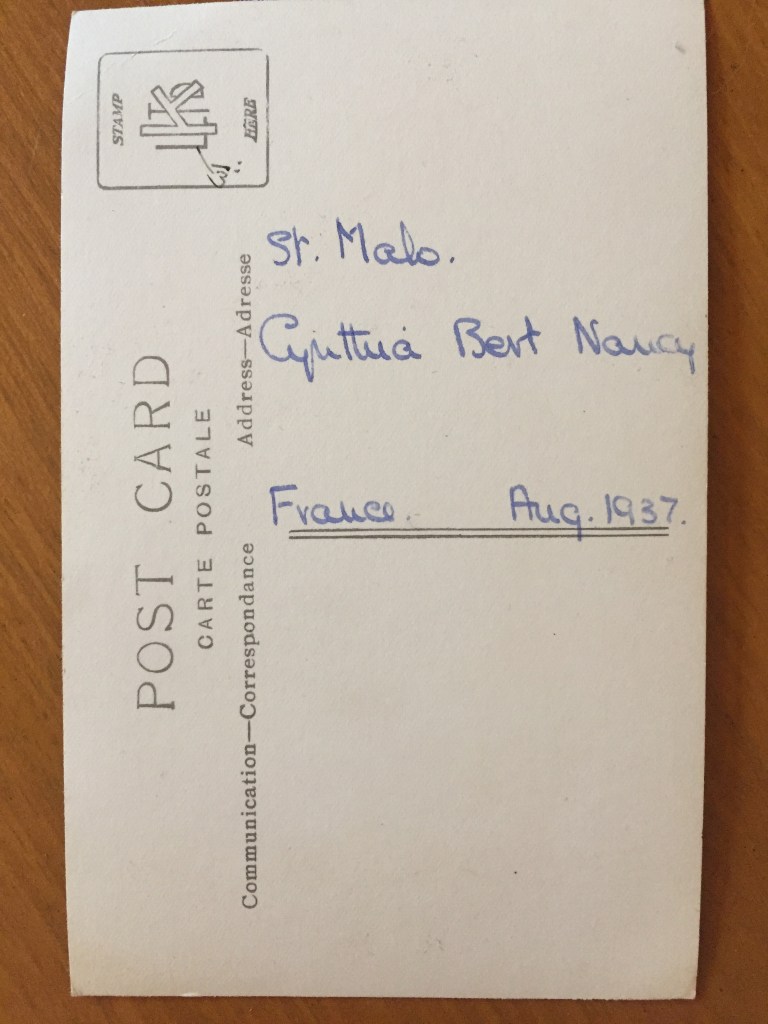 STAMP
LK
HERE
POST CARD
CARTE POSTALE
Communication—Correspondance
Address—Adresse
St. Malo.
Cynthia Bert Nancy
France. Aug. 1937.